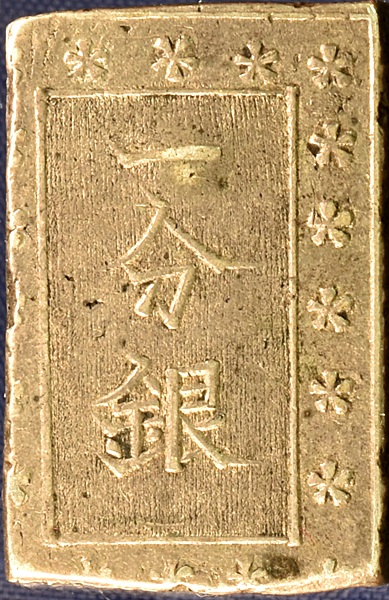 一分銀